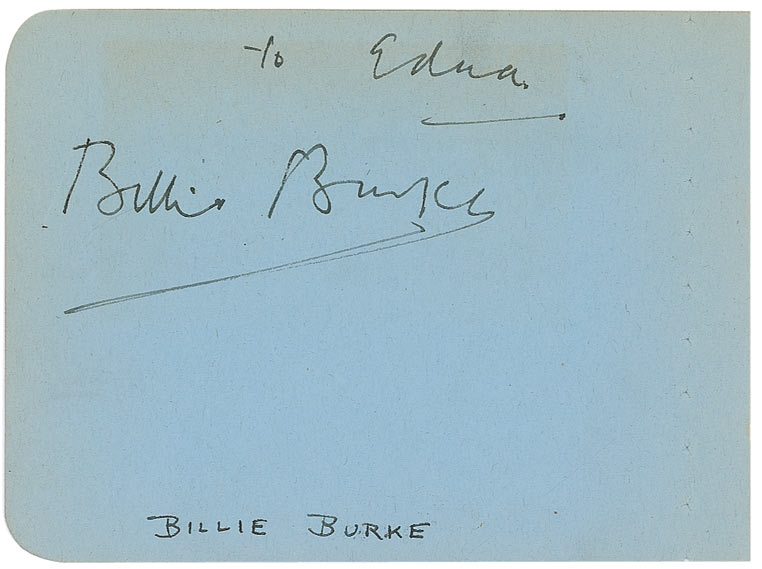 To Edna.
Billie Burke
BILLIE BURKE